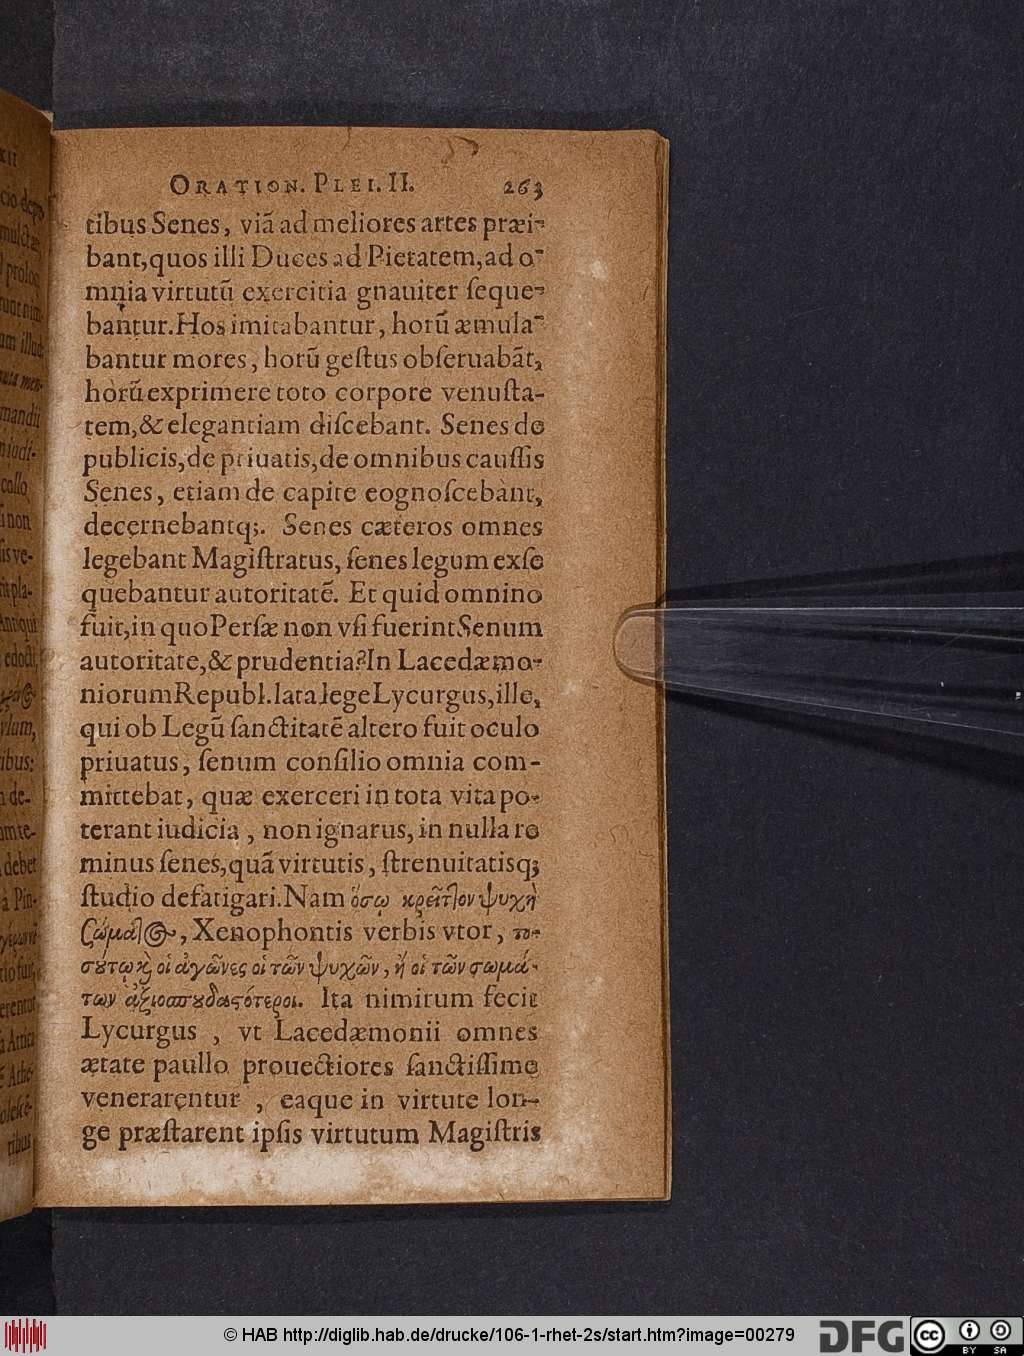 ORATION. PLEI. II. 263
tibus Senes, viã ad meliores artes præi-
bant, quos illi Duces ad Pietatem, ad o-
mnia virtutũ exercitia gnauiter seque-
bantur. Hos imitabantur, horũ æmula-
bantur mores, horũ gestus obseruabãt,
horũ exprimere toto corpore venusta-
tem, & elegantiam discebant. Senes de
publicis, de priuatis, de omnibus caussis
Senes, etiam de capite eognoscebant,
decernebantq;. Senes cæteros omnes
legebant Magistratus, senes legum exse
quebantur autoritatẽ. Et quid omnino
fuit, in quo Persæ non vsi fuerint Senum
autoritate, & prudentia? In Lacedæmo-
niorum Republ. lata lege Lycurgus, ille,
qui ob Legũ sanctitatẽ altero fuit oculo
priuatus, senum consilio omnia com-
mittebat, quæ exerceri in tota vita po-
terant iudicia, non ignarus, in nulla re
minus senes, quã virtutis, strenuitatisq;
studio defatigari. Nam ὅσῳ κρεῖττον ψυχὴ
σώματος, Xenophontis verbis vtor, το-
σούτῳ καὶ οἱ ἀγῶνες οἱ τῶν ψυχῶν, ἢ οἱ τῶν σωμά-
των ἀξιοσπουδαστότεροι. Ita nimirum fecit
Lycurgus, vt Lacedæmonii omnes
ætate paullo prouectiores sanctissime
venerarentur, eaque in virtute lon-
ge præstarent ipsis virtutum Magistris
© HAB http://diglib.hab.de/drucke/106-1-rhet-2s/start.htm?image=00279
DFG
cc BY SA